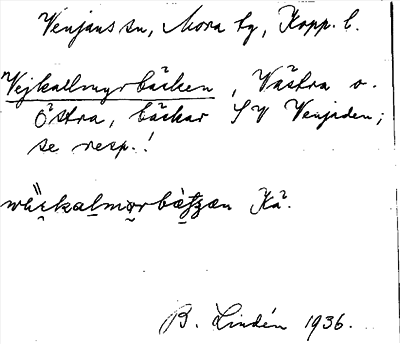 Venjans sn, Mora tg, Kopp. l.
Vejkallmyrbäcken, Västra o.
Östra, bäckar SV Venjaden;
se resp.!
Kä.
B. Lindén 1936.